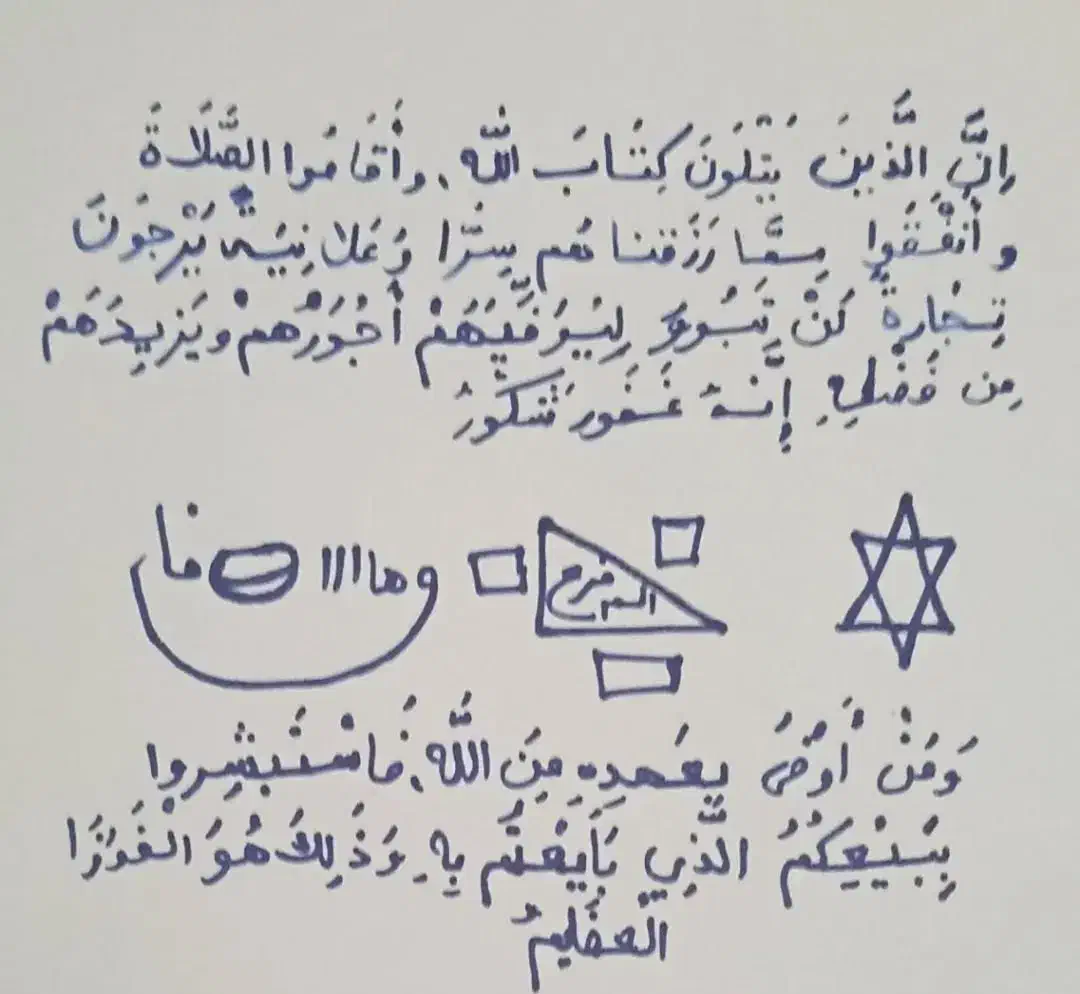 إِنَّ الَّذِينَ يَتْلُونَ كِتَابَ اللَّهِ وَأَقَامُوا الصَّلَاةَ
وأَنفَقُوا مِمَّا رَزَقنَاهُم سِرًّا وَعَلانِيَةً يَرْجُونَ
تِجَارَةً لَنْ تَبُورَ لِيُوَفِّيَهُمْ أُجُورَهُمْ ويَزِيدَهُمْ
مِن فَضْلِهِ إِنَّهُ غَفُورٌ شَكُورٌ
وَمَنْ أَوْفَى بِعَهدِهِ مِنَ اللَّهِ فَاسْتَبْشِرُوا
بِبَيْعِكُمُ الَّذِي بَايَعْتُم بِهِ وَذَلِكَ هُوَ الْفَوْزُ
الْعَظِيمُ